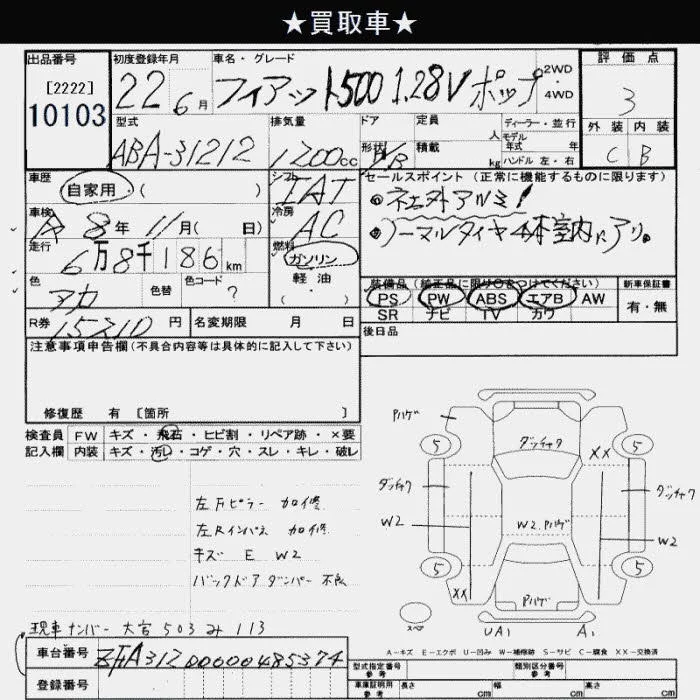 ★買取車★
出品番号
[2222]
10103
初度登録年月
22 6月
車名・グレード
フィアット500 1.28V ポップ
2WD
4WD
評価点
3
外装 内装
C B
型式
ABA-31212
排気量
1200cc
ドア
形状
/HB
定員 人
積載 kg
ディーラー・並行
モデル
年式 年
ハンドル 左・右
車歴
自家用 ( )
シフト
IAT
セールスポイント (正常に機能するものに限ります)
①社外アルミ!
②ノーマルタイヤ4本室内にアリ。
車検
R 8年 11月( 日)
冷房
AC
走行
6万8千186km
燃料
ガソリン
軽油
( )
色
アカ
色替
色コード
?
装備品 (純正品に限り○をつけてください)
PS PW ABS エアB AW
SR ナビ TV カワ
新車保証書
有・無
後日品
R券 15210円
名変期限 月 日
注意事項申告欄(不具合内容等は具体的に記入して下さい)
修復歴 有 [箇所 ]
検査員 FW キズ・飛石・ヒビ割・リペア跡・×要
記入欄 内装 キズ・汚レ・コゲ・穴・スレ・キレ・破レ
左Fピラー 加修
左Rインパネ 加修
キズ E W2
バックドアダンパー 不良
Pハゲ
5 5
ダッチャク
XX
ダッチャク
ダッチャク
W2
W2.Pハゲ
W2
5 5
XX
Pハゲ
スペア
UA1 A1
現車ナンバー 大宮 503 み 113
A-キズ E-エクボ U-凹み W-補修跡 S-サビ C-腐食 XX-交換済
車台番号 ZFA31200000485374
登録番号
型式指定番号
参考
類別区分番号
参考
車庫証明用
参考
長さ cm 幅 cm 高さ cm